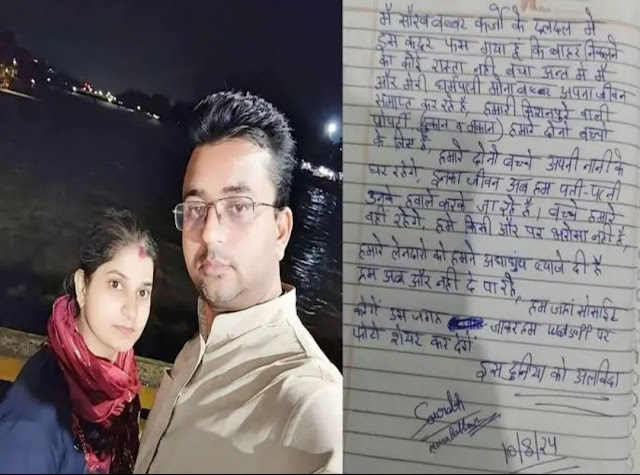 मैं सौरव बब्बर कर्जो के दलदल में
इस कदर फस गया हूं कि बाहर निकलने
का कोई रास्ता नही बचा अन्त में मैं
और मेरी धर्मपत्नी मोना बब्बर अपना जीवन
समाप्त कर रहे है, हमारी किशनपुरे वाली
प्रोपर्टी (दुकान व मकान) हमारे दोनो बच्चो
के लिए है, हमारे दोनो बच्चे अपनी नानी के
घर रहेंगे, इनका जीवन अब हम पती-पत्नी
उनके हवाले करके जा रहे है। बच्चे हमारे
वही रहेगे, हमे किसी और पर भरोसा नही है,
हमारे लेनदारो को हमने अंधाधुंध ब्याजे दी है
हम अब और नही दे पा रहे,
हम जहां सोसाईट
करेगें उस जगह जाकर हम WhatsAPP पर
फोटो शेयर कर देगें
इस दुनिया को अलविदा
Saurabh
10/8/24